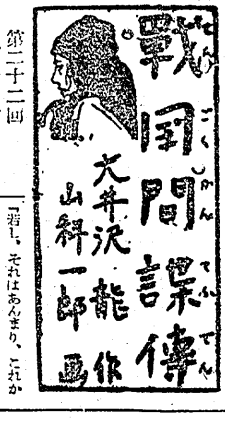 戰国間諜傳
せんごくかんてふでん
大井沢龍作
山科一郎画
第二十二回
「若し、それはあんまり、これか